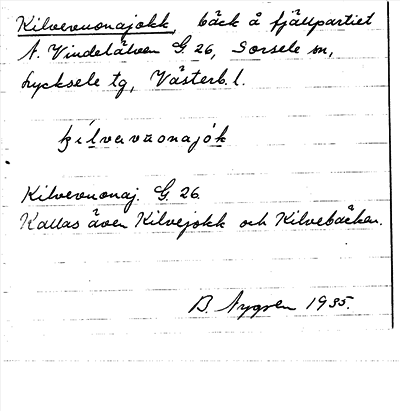 Kilvevuonajokk, bäck å fjällpartiet
N. Vindelälven G. 26, Sorsele sn,
Lycksele tg, Västerb. l.
kilvavuonajok
Kilvevuonaj. G. 26.
Kallas även Kilvejokk och Kilvebäcken.
B. Nygren 1935.